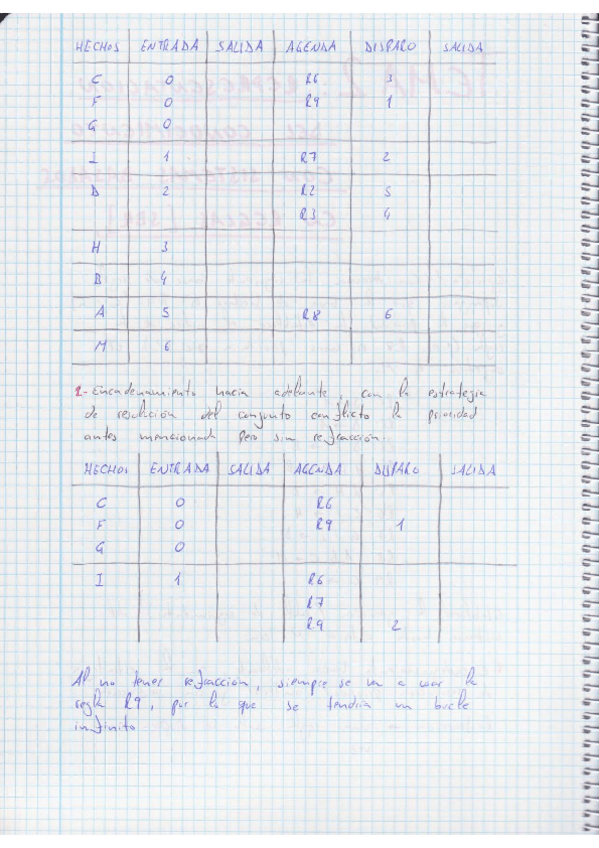 HECHOS ENTRADA SALIDA AGENDA DISPARO SALIDA
C 0 R6 3
F 0 R9 1
G 0
I 1 R7 2
D 2 R2 5
R3 4
H 3
B 4
A 5 R8 6
M 6
2.- Encadenamiento hacia adelante, con la estrategia
de resolución del conjunto conflicto la prioridad
antes mencionada pero sin refracción.
HECHOS ENTRADA SALIDA AGENDA DISPARO SALIDA
C 0 R6
F 0 R9 1
G 0
I 1 R6
R7
R9 2
Al no tener refracción, siempre se va a usar la
regla R9, por lo que se tendría un bucle
infinito